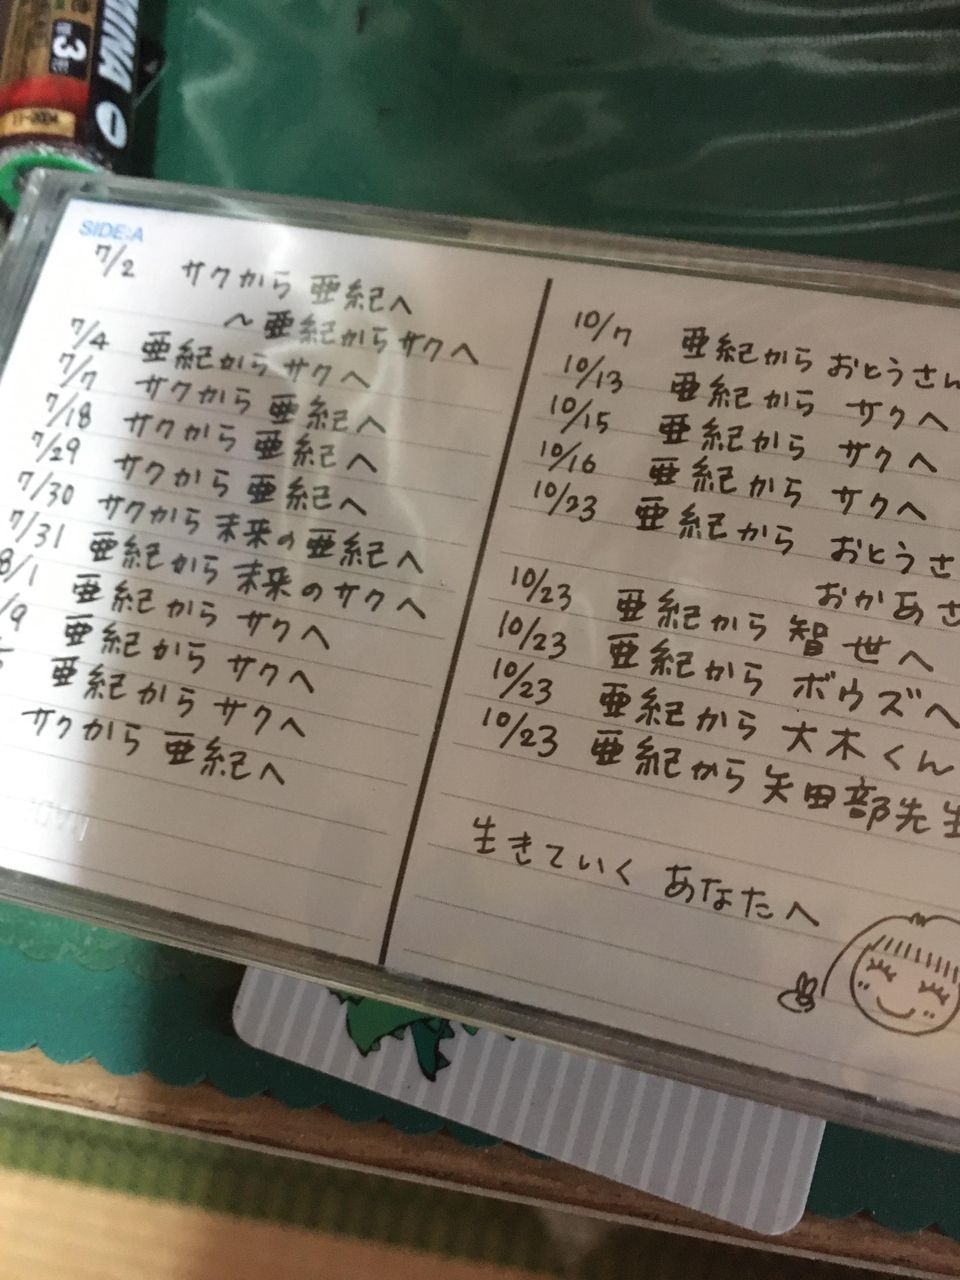 INA
3
11-2004
SIDE:A
7/2 サクから 亜紀へ
〜亜紀からサクへ
7/4 亜紀からサクへ
7/7 サクから 亜紀へ
7/18 サクから 亜紀へ
7/29 サクから 亜紀へ
7/30 サクから未来の亜紀へ
7/31 亜紀から未来のサクへ
8/1 亜紀から サクへ
/9 亜紀から サクへ
亜紀から サクへ
サクから 亜紀へ
10/7 亜紀から おとうさん
10/13 亜紀から サクへ
10/15 亜紀から サクへ
10/16 亜紀から サクへ
10/23 亜紀から おとうさ
おかあさ
10/23 亜紀から 智世へ
10/23 亜紀から ボウズへ
10/23 亜紀から 大木くん
10/23 亜紀から矢田部先生
生きていく あなたへ